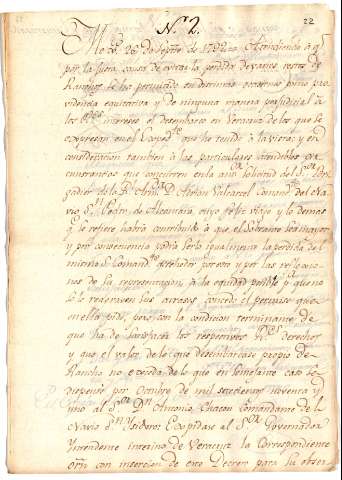 N.º 2.
22
Mex.co 28 de Septre de 1792 = Atendiendo a q.e
por la justa causa de evitar la perdida de varios restos de
Ranchos se ha permitido en distintas ocasiones como pro
videncia equitativa y de ninguna manera perjudicial a
los R.es intereses el desembarco en Veracruz de los que se
expresan en el Exped.te que he tenido a la vista: y en
consideracion tambien a las particulares atendibles cir
cunstancias que concurren en la actual solicitud del S.or Bri
gadier de la R.l Armada D. Adrian Valcarcel Comand.te del Na
vio S.n Pedro de Alcantara, cuyo feliz viaje y lo demas
q.e refiere habrá contribuido a que el sobrante sea mayor
y por consecuencia podria serlo igualmente la perdida del
mismo S.or Comand.te acrehedor por esto y por las relaciones
de su representacion, a la equidad posible p.a que no
se le redoblen sus atrasos, concedo el permiso que
en ella pide, pero con la condicion terminante de
que ha de satisfacer los respectivos R.es derechos
y que el valor de lo que desembarcase propio de
Rancho no exceda de lo que en semejante caso se
dispensó por Octubre de mil setecientos noventa y
uno al S.or D.n Antonio Chacon Comandante del
Navio S.n Ysidoro: Expidase al S.or Governador
Yntendente interino de Veracruz la correspondiente
orn con insercion de este Decreto para su obser